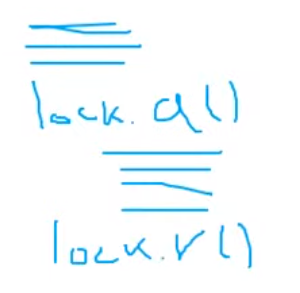 lock.a()
lock.r()